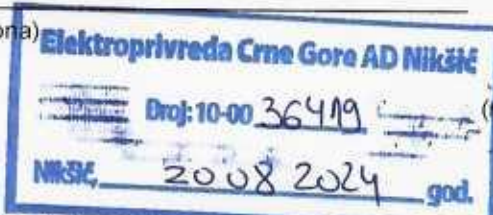 ona)
Elektroprivreda Crne Gore AD Nikšić
Broj: 10-00 36419
(
Nikšić, 20 08 2024 god.